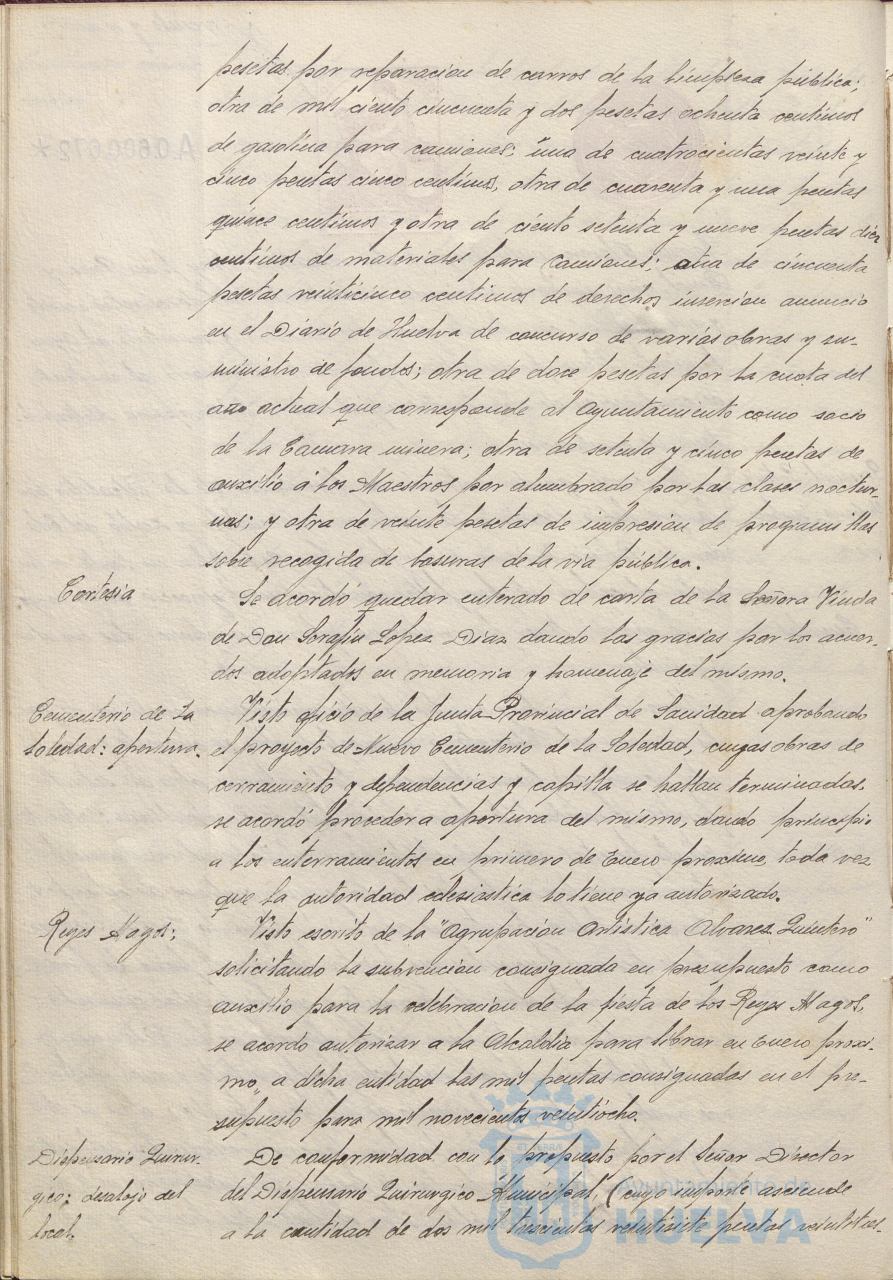 pesetas por reparacion de carros de la limpieza pública;
otra de mil ciento cincuenta y dos pesetas ochenta centimos
de gasolina para camiones; una de cuatrocientas veinte y
cinco pesetas cinco centimos, otra de cuarenta y una pesetas
quince centimos y otra de ciento setenta y nueve pesetas diez
centimos de materiales para camiones; otra de cincuenta
pesetas veinticinco centimos de derechos insercion anuncio
en el Diario de Huelva de concurso de varias obras y su-
ministro de fondos; otra de doce pesetas por la cuota del
año actual que corresponde al Ayuntamiento como socio
de la Camara minera; otra de setenta y cinco pesetas de
auxilio á los Maestros por alumbrado por las clases noctur-
nas; y otra de veinte pesetas de impresion de programillas
sobre recogida de basuras de la via pública.
Cortesia
Se acordó quedar enterado de carta de la Señora Viuda
de Don Serafin Lopez Diaz dando las gracias por los acuer-
dos adoptados en memoria y homenaje del mismo.
Cementerio de la
Soledad: apertura.
Visto oficio de la Junta Provincial de Sanidad aprobando
el proyecto de Nuevo Cementerio de la Soledad, cuyas obras de
cerramiento y dependencias y capilla se hallan terminadas,
se acordó proceder a apertura del mismo, dando principio
a los enterramientos en primero de Enero proximo, toda vez
que la autoridad eclesiastica lo tiene ya autorizado.
Reyes Magos;
Visto escrito de la "Agrupacion Artistica Alvarez Quintero"
solicitando la subvencion consignada en presupuesto como
auxilio para la celebracion de la fiesta de los Reyes Magos,
se acordo autorizar a la Alcaldia para librar en Enero proxi-
mo, a dicha entidad las mil pesetas consignadas en el pre-
supuesto para mil novecientos veintiocho.
Dispensario Quirur-
gico: desalojo del
local.
De conformidad con lo propuesto por el Señor Director
del Dispensario Quirurgico Municipal, (cuyo importe asciende
a la cantidad de dos mil trescientas veintisiete pesetas veintitres-
HUELVA